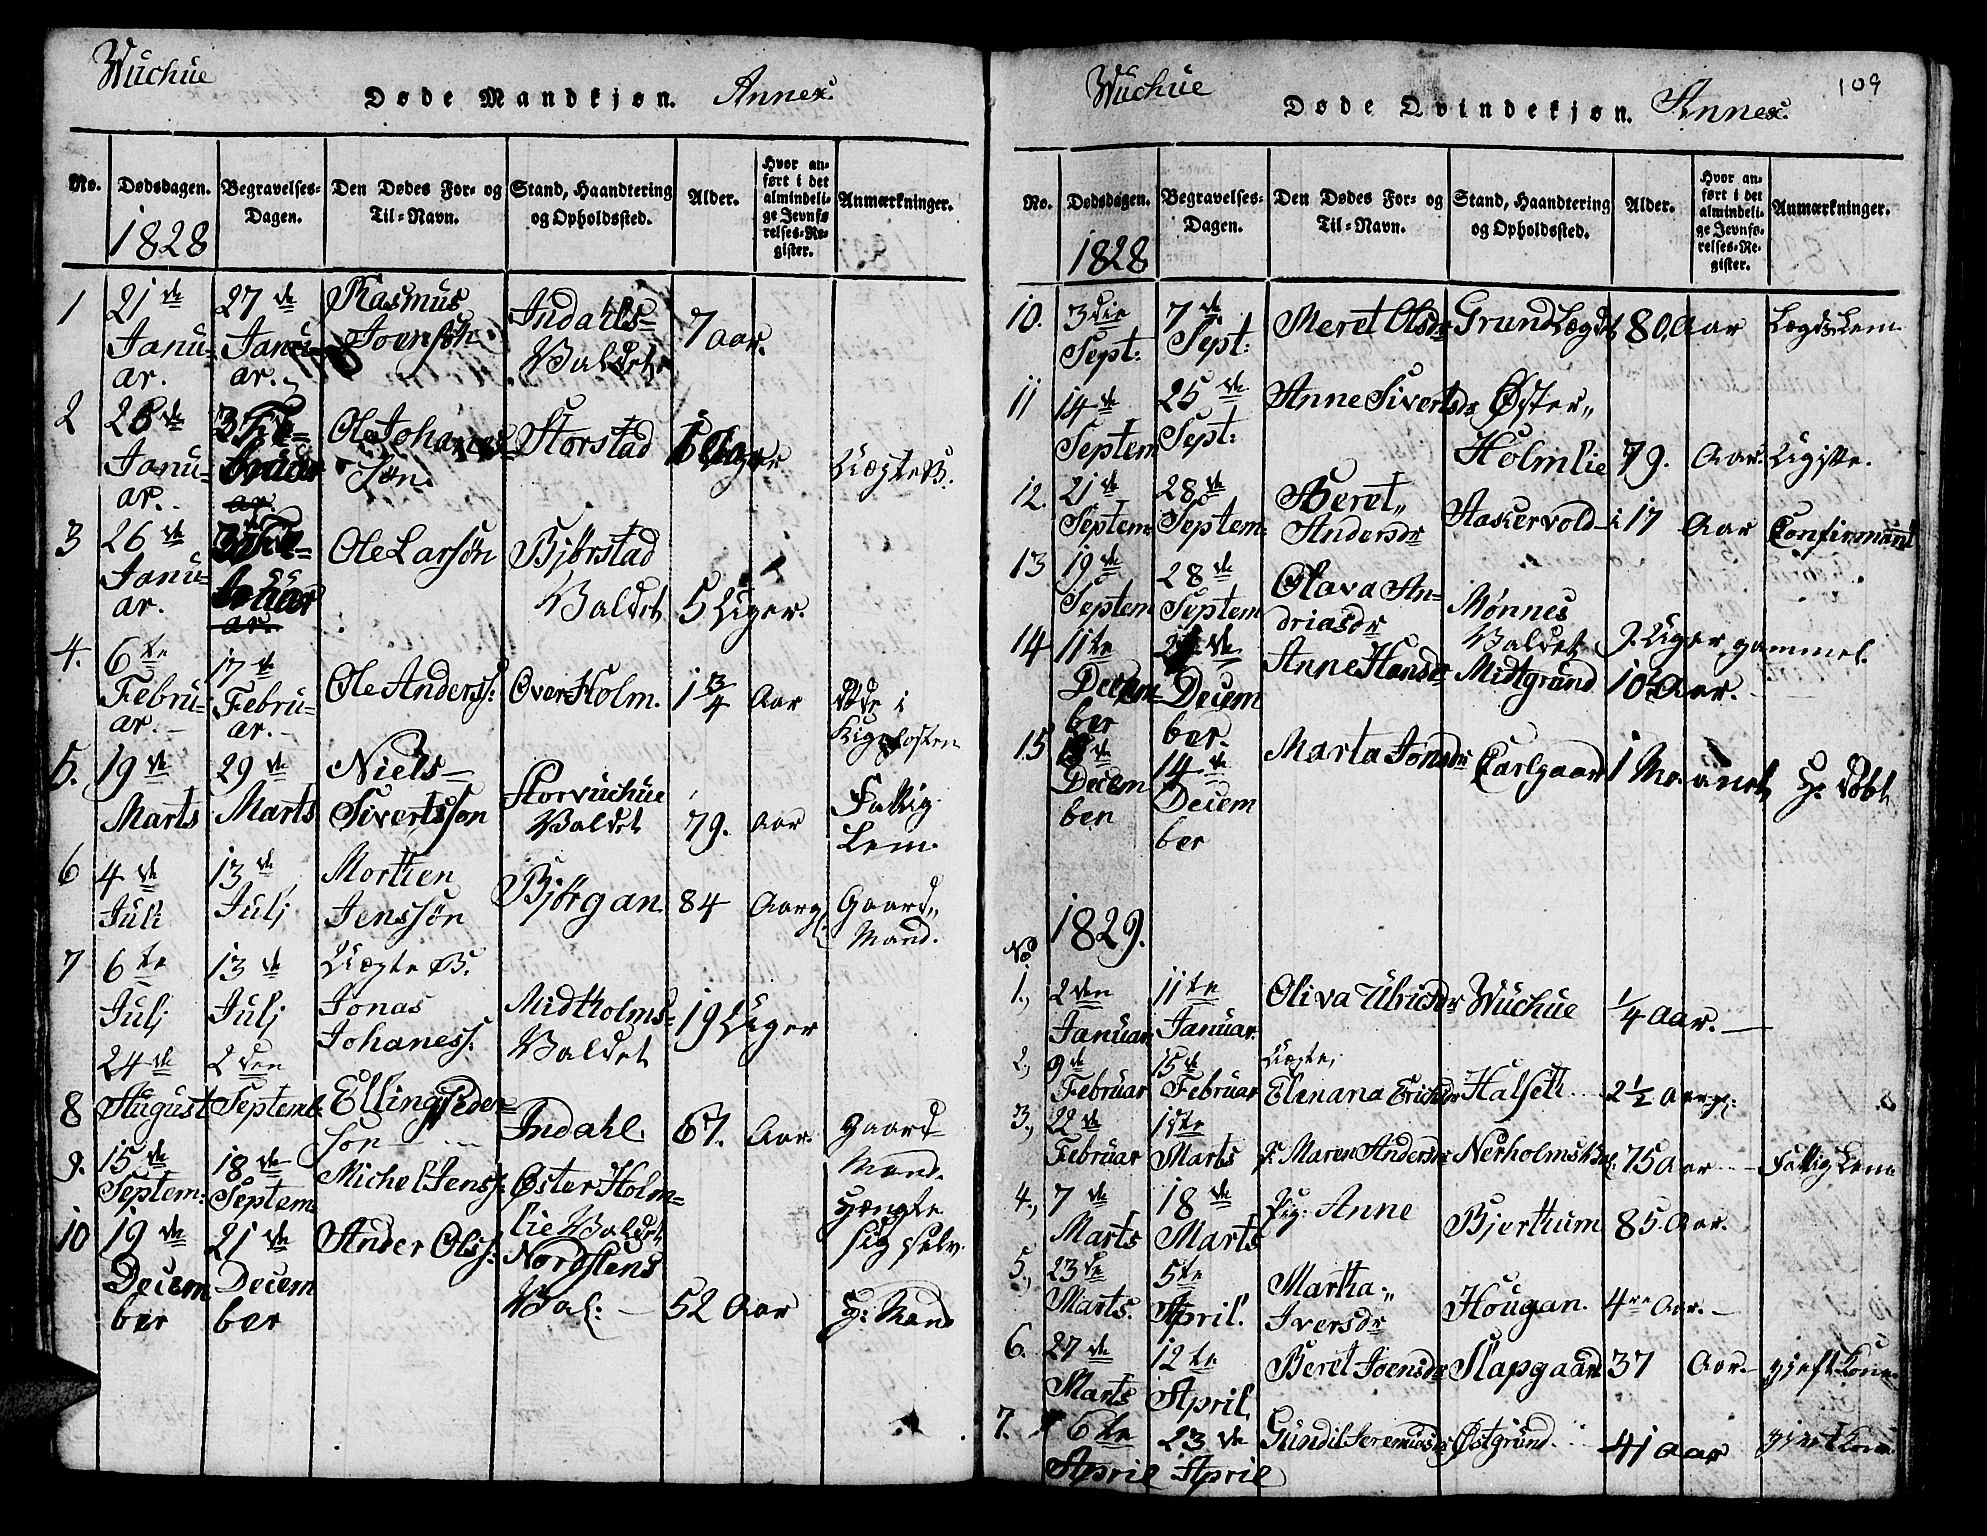 Wuchue
Døde Mandkjøn. Annex.
No. Dødsdagen. Begravelses-Dagen. Den Dødes For- og Til-Navn. Stand, Haandtering og Opholdssted. Alder. Hvor anført i det almindelige Jevnførelses-Register. Anmærkninger.
1828
1 21de Januar. 27de Januar. Rasmus Joensøn Indahls Valdet 7 aar.
2 26de Januar. Ole Johanessøn Storstad Uægte B.
3 26de Januar. Ole Larsøn Bjørstad Valdet 5 Uger.
4. 6te Februar. 17de Februar. Ole Anderss: Over Holm. 1 3/4 Aar Døde i
5. 19de Marts 29de Marts Niels Sivertssøn Storvuchue Valdet 79. Aar Fattig Lem.
6 4de Juli 13de Julj Morthen Jenssøn Bjørgan 84 Aar Gaard Mand.
7 6te Julj 13de Julj Uægte B. Jonas Johaness: Midtholms Valdet 19 Uger
8 24de August 2den Septemb. Elling Pedersøn Indahl. 67. Aar. Gaard Mand.
9. 15de Septem: 18de Septem Michel Jenss: Øster Holmlie Valdet Hængte sig selv.
10 19de December 21de December Ander Olss: Nordstens Val: 52 Aar G: Mand
Wuchue
Døde Qvindekjøn. Annex. 109
No. Dødsdagen. Begravelses-Dagen. Den Dødes For- og Til-Navn. Stand, Haandtering og Opholdssted. Alder. Hvor anført i det almindelige Jevnførelses-Register. Anmærkninger.
1828
10. 3die Sept: 7de Sept: Meret Olsdr Grund Lægdet 80. Aar Lægdslem
11 14de Septem 25de Sept: Anne Sivertsdr Øster Holmlie 79. Aar.
12. 21de Septem 28de Septem: Beret Andersdr Stakervold 17 Aar Confirmant
13 19de Septem 28de Septem Olava Andriasdr Mønnes Valdet 9. Uger gammel.
14 11te December December. Anne Hansdr Midtgrund 10 Aar.
15 December 14de December Marta Jonsdr Carlgaard 1 Maanet H: døbt
1829.
No
1., 2den Januar 11te Januar. Oliva Ulricsdr Wuchue 1/4 Aar.
2., 9de Februar 15de Februar Uægte, Elenana Ericsdr Halseth 2 1/2 Aar
3., 22de Februar Marts Maren Andersdr Nerholms 75 Aar Fattig Lem
4., 7de Marts 18de Marts Pig: Anne Bjerthum 85. Aar.
5., 23de Marts. 5te April. Martha Iversdr Hougan. 4re Aar.
6. 27de Marts 12te April. Beret Joensdr Slapgaard 37 Aar. gieft Kone.
7. 6te April 23de April Gundil Jeremiasdr Østgrund. 41 Aar gieft Kone